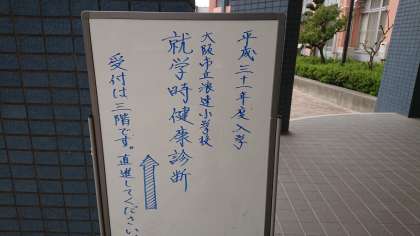 平成三十一年度入学
大阪市立浪速小学校
就学時健康診断
受付は三階です。直進してください。